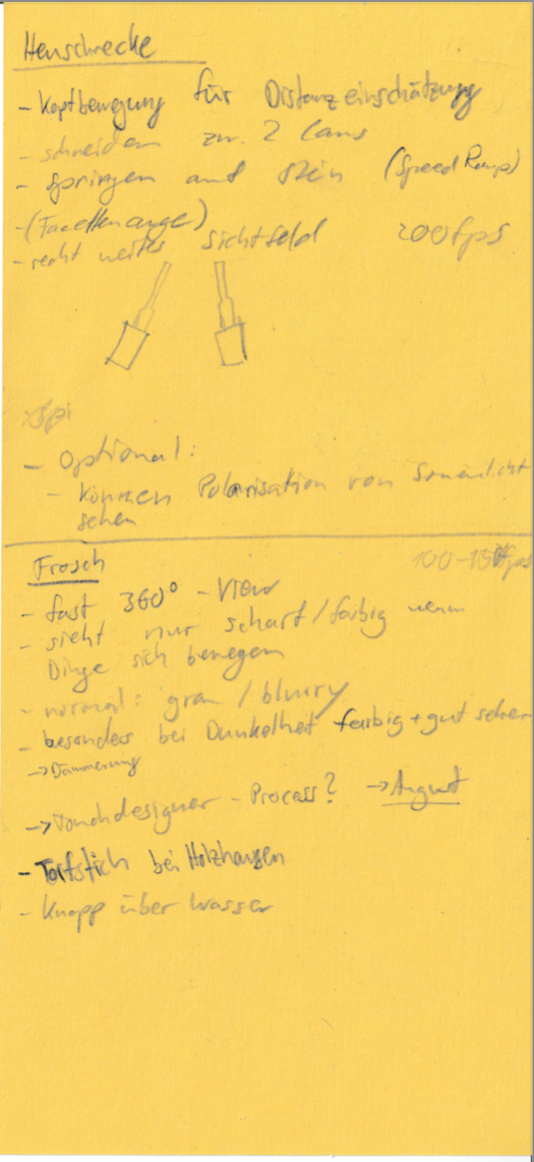 Heuschrecke
- Kopfbewegung für Distanzeinschätzung
- schneiden zw. 2 Cams
- springen auf Stein (Speed Ramp)
- (Facettenauge)
- recht weites Sichtfeld 200fps
- Optional:
- können Polarisation von Sonnenlicht
sehen
Frosch
- fast 360° - View
- sieht nur scharf/farbig wenn
Dinge sich bewegen
- normal: grau / blurry
- besonders bei Dunkelheit farbig + gut sehen
-> Dämmerung
-> Touchdesigner - Process? -> August
- Torfstich bei Holzhausen
- Knapp über Wasser